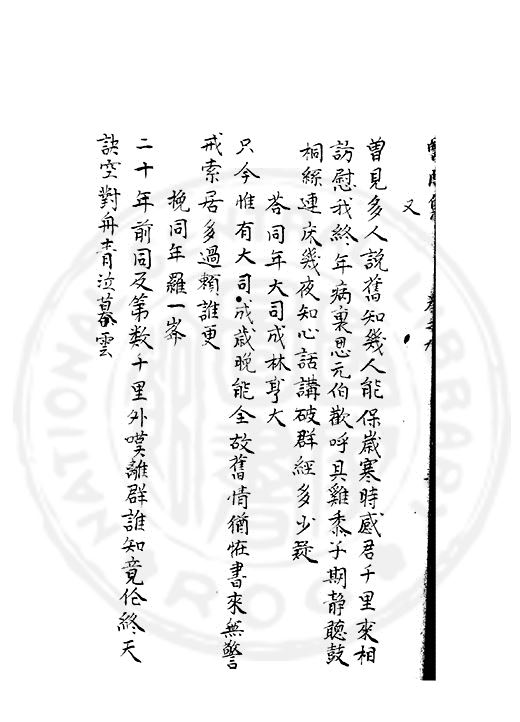 又
曽見多人説舊知幾人能保嵗寒時感君千里來相
訪慰我終年病裏思元伯歡呼具雞黍子期静聽鼓
桐絲連床幾夜知心話講破群經多少疑
荅同年大司成林亨大
只今惟有大司成嵗晚能全故舊情猶恠書來無警
戒索居多過頼誰更
挽同年羅一峯
二十年前同及第数千里外嘆離群誰知竟作終天
訣空對丹青泣暮雲